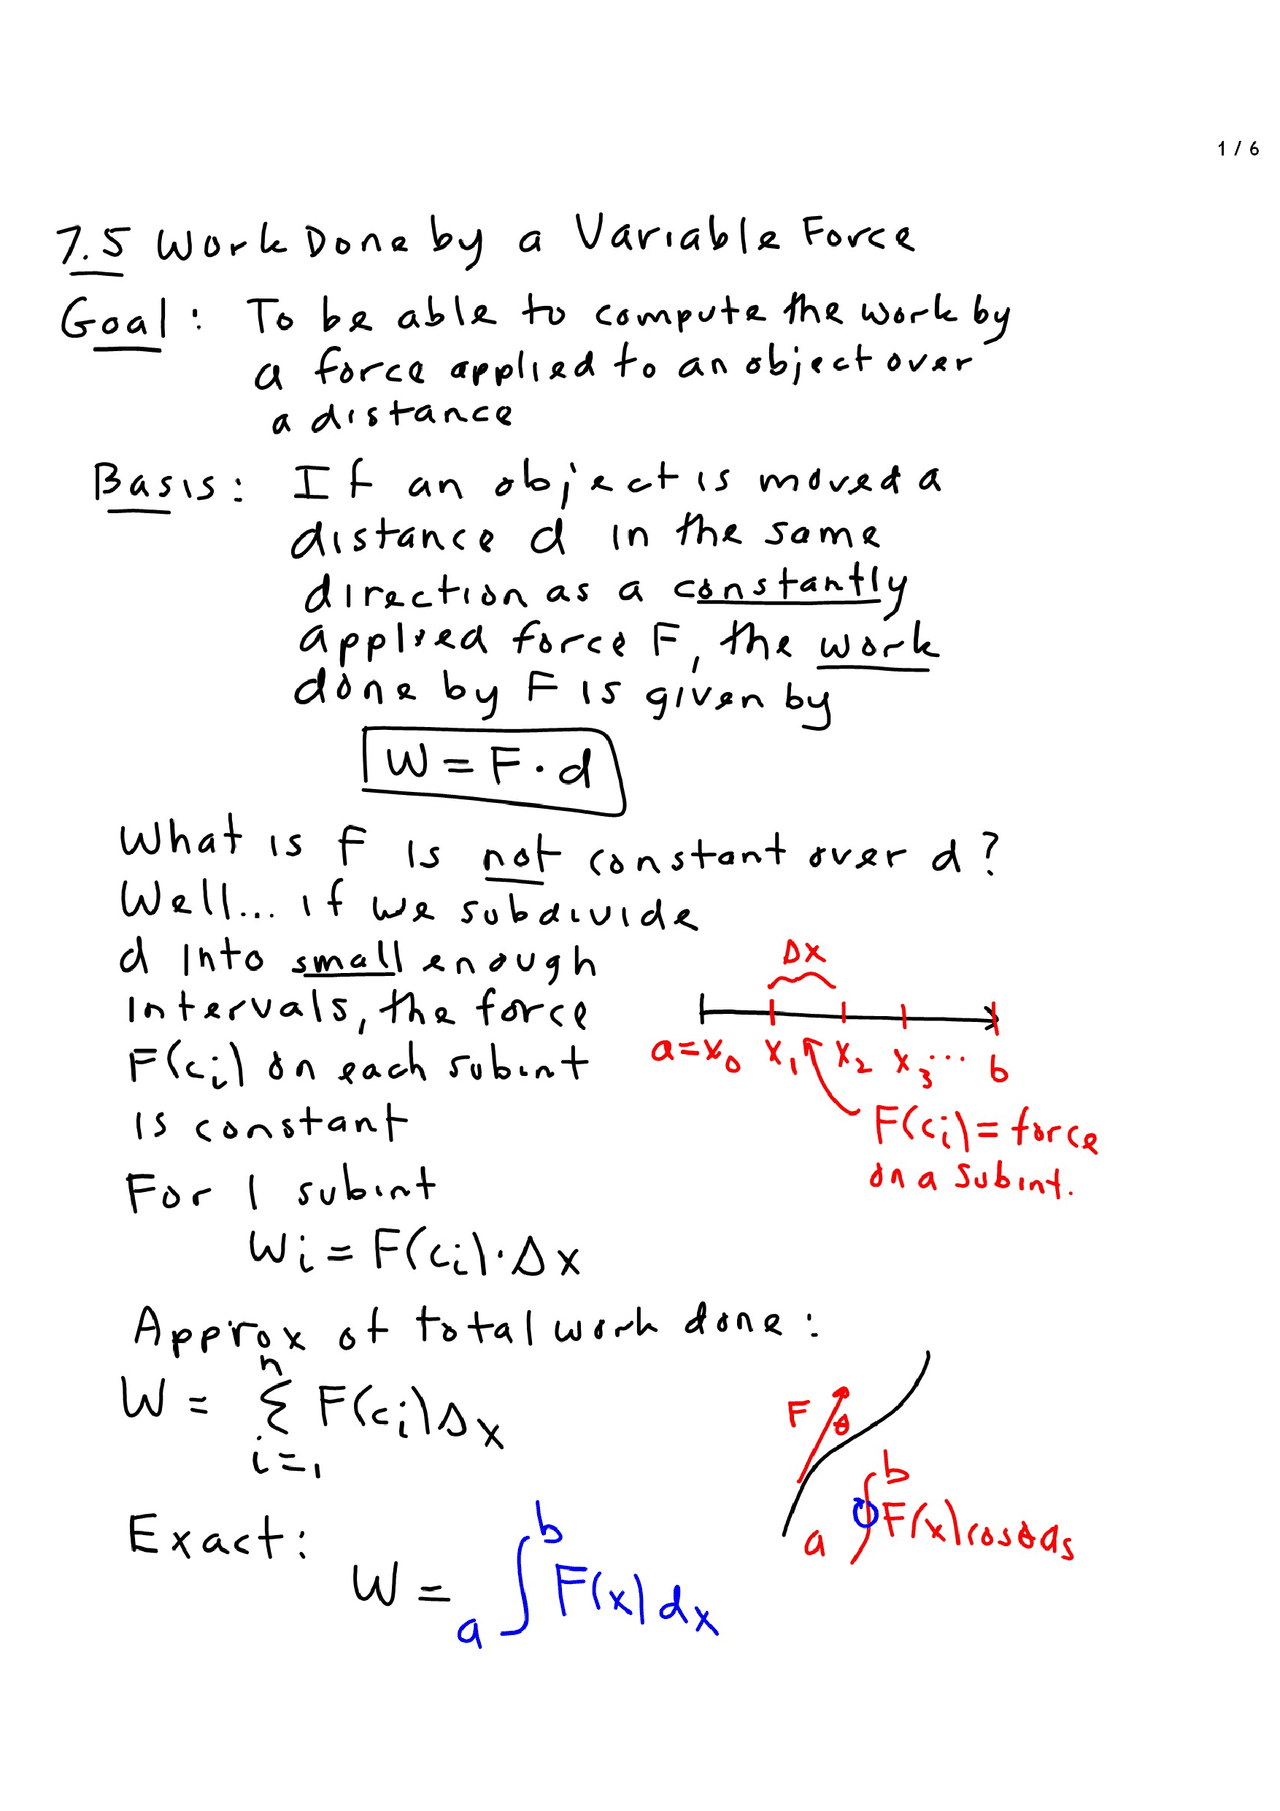 1 / 6
7.5 Work Done by a Variable Force
Goal: To be able to compute the work by
a force applied to an object over
a distance
Basis: If an object is moved a
distance d in the same
direction as a constantly
applied force F, the work
done by F is given by
W = F · d
What is F is not constant over d?
Well... if we subdivide
d into small enough
intervals, the force
F(ci) on each subint
is constant
Δx
a=x₀ x₁ x₂ x₃ ... b
F(ci) = force
on a subint.
For 1 subint
Wi = F(ci)·Δx
Approx of total work done:
W = n Σ i=1 F(ci)Δx
F θ
a ∮ b F(x)cosθds
Exact:
W = a ∫ b F(x)dx